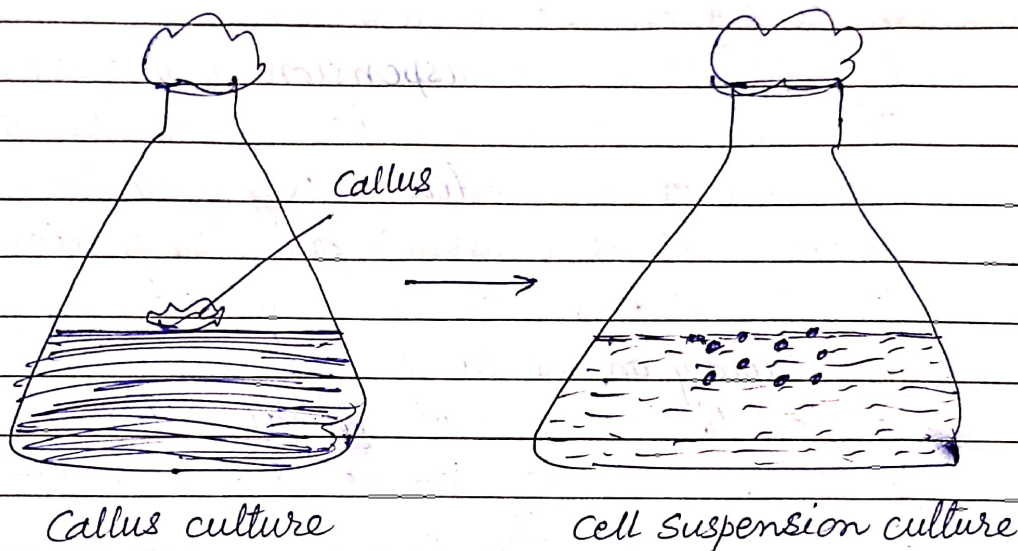 Callus
Callus culture
Cell suspension culture